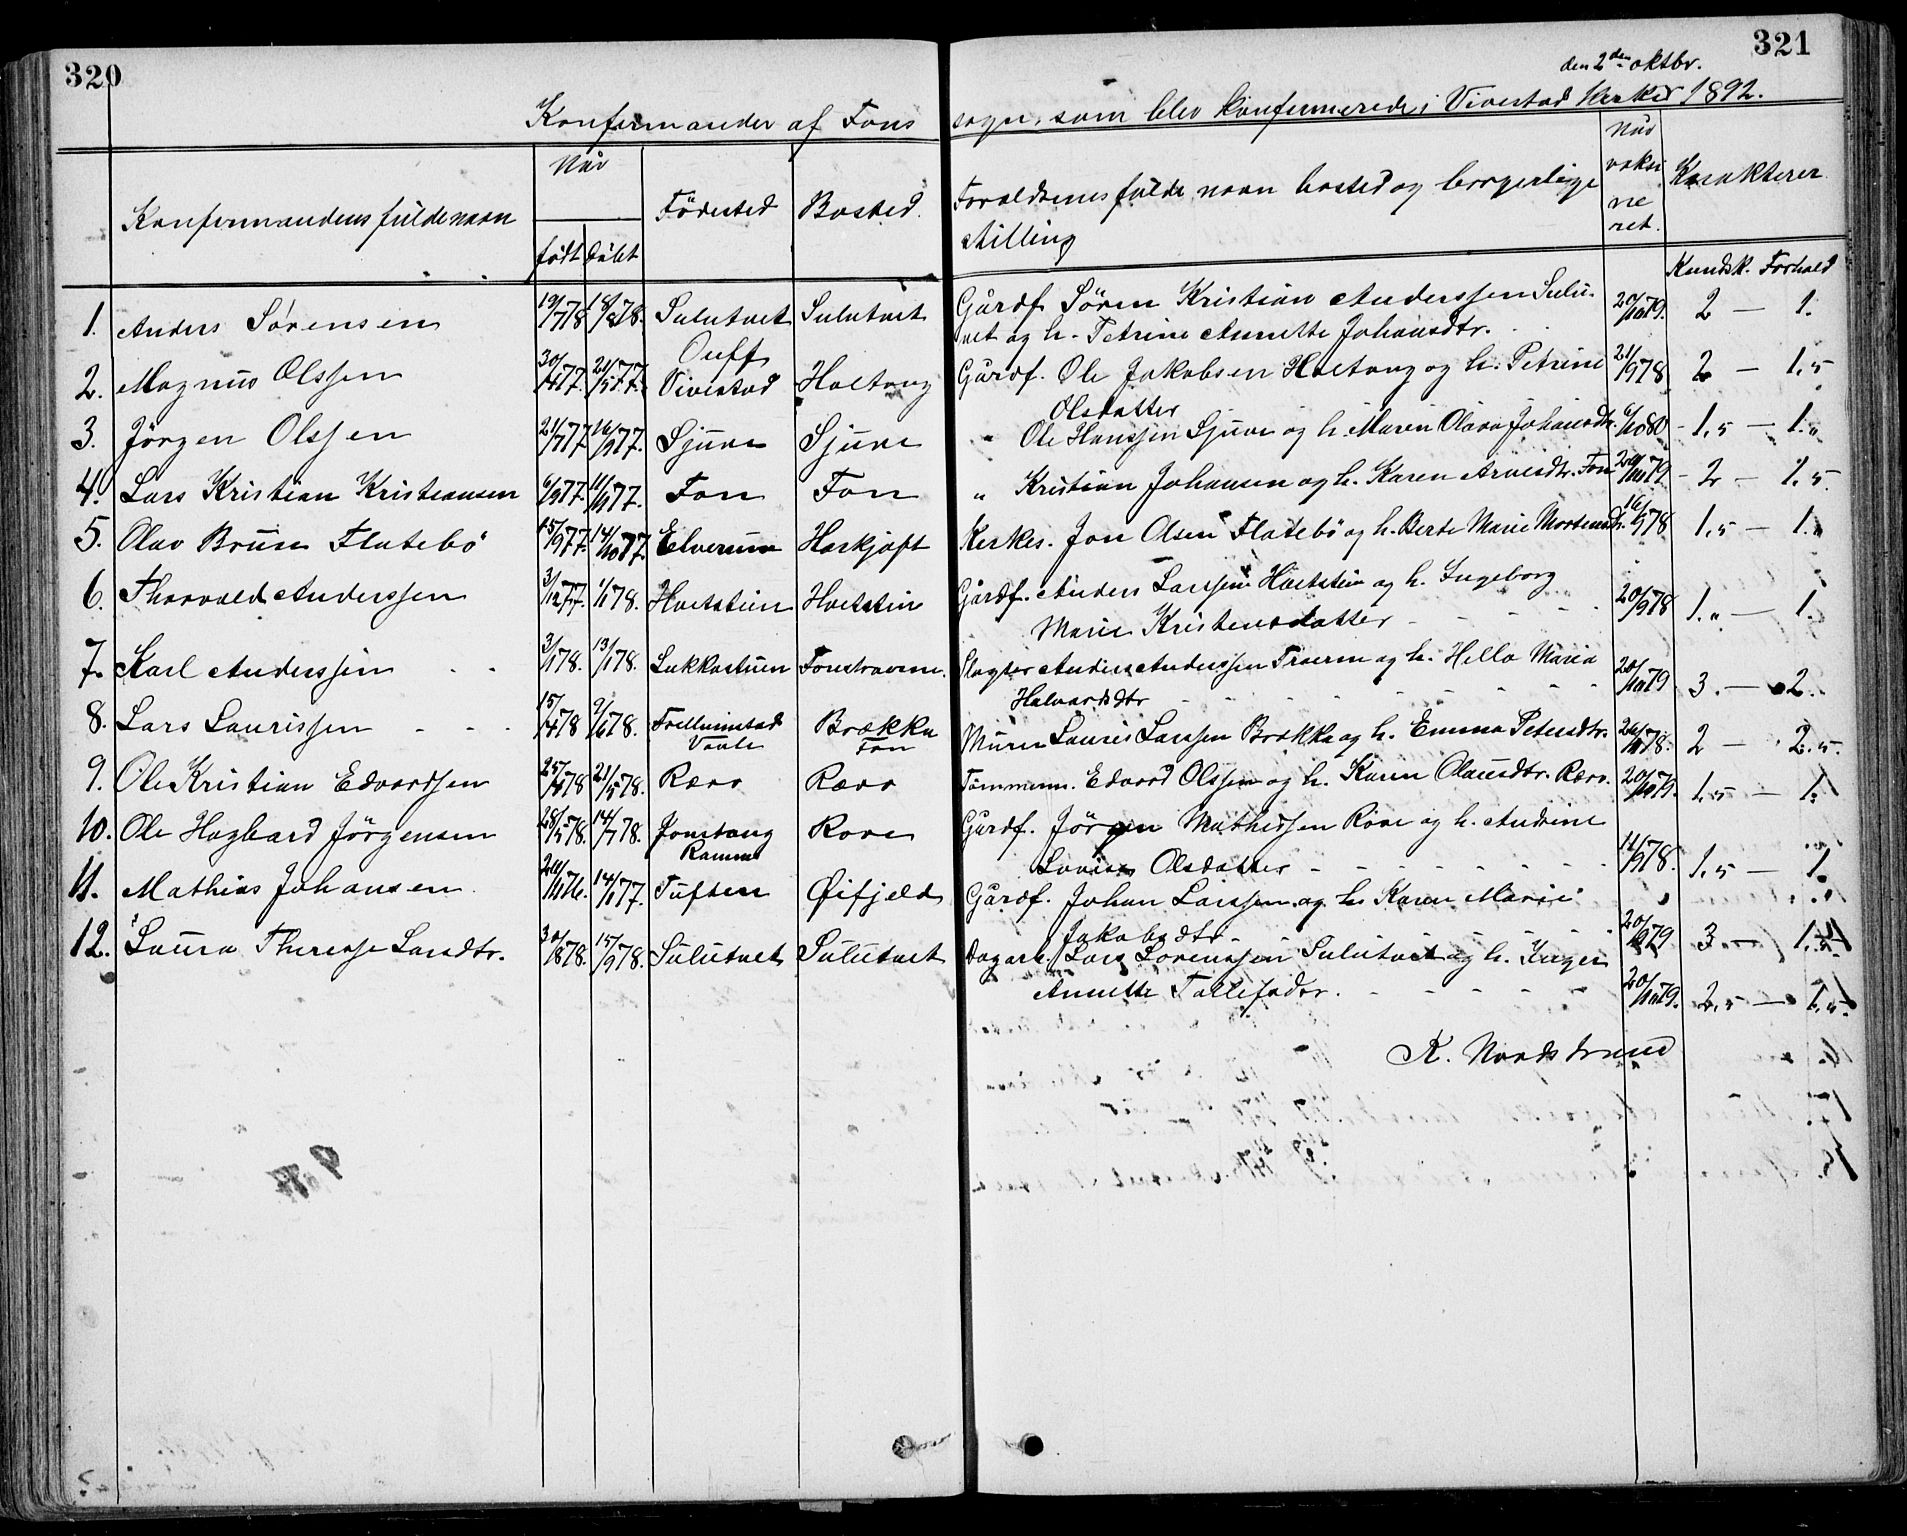 320
321
den 2den oktbr.
Konfirmander af Fons sogn, som blev konfirmerede i Vivestad kirke 1892.
Konfirmandens fulde navn
Når
født døbt
Födested
Bosted.
Forældrenes fulde navn bosted og borgerlige
stilling
Når
vaksi
ne
ret.
Karakterer.
Kundsk. Forhold
1. Anders Sörensen 19/7 78 18/8 78. Sulutvet Sulutvet Gårdf. Sören Kristian Anderssen Sulu- 20/10 79. 2 — 1.
vet og h. Petrine Annette Johansdtr.
2. Magnus Olssen 30/4 77. 21/5 77. Ouff
Vivestad Haltang Gårdf. Ole Jakobsen Haltang og h. Petrine 21/9 78 2 — 1,5
Olsdatter
3. Jörgen Olssen 21/7 77 16/9 77. Sjuve Sjuve " Ole Hanssen Sjuve og h. Maren Olava Johansdtr. 6/10 80 1,5 — 1.
4. Lars Kristian Kristiansen 6/9 77. 11/11 77. Fon Fon " Kristian Johansen og h. Karen Arnesdtr. Fon 20/10 79 2 — 1,5.
5. Olav Bruun Flatebö 15/9 77. 14/10 77. Elverum Horkjøft Kirkes. Jon Olsen Flatebö og h. Berte Marie Mortensd. 16/9 78 1,5 — 1.
6. Thorvald Anderssen 3/12 77. 1/1 78. Hvitstein Hvitstein Gårdf. Anders Larssen Hvitstein og h. Ingeborg
Marie Kristensdatter 20/9 78 1. — 1.
7. Karl Anderssen 3/1 78. 13/1 78. Lukkastuen Fonstraverne. Slagter Anders Anderssen Traverne og h. Hella Maria
Halvardsdtr 20/10 79 3. — 2.
8. Lars Laurissen 15/4 78 9/6 78. Vaale Brække
Fon Murer Lauris Larssen Brække og h. Emma Petersdtr. 2 — 2.5.
9. Ole Kristian Edvardsen 25/4 78 21/5 78. Rævo Rævo Tömmerm. Edvard Olssen og h. Karen Olausdtr. Rævo. 20/10 79. 1,5 — 1.
10. Ole Hagbard Jörgensen 28/5 78. 14/7 78. Jonstang
Ramnes Röve Gårdf. Jörgen Mathissen Röve og h. Andrine
Lovise Olsdatter 11/9 78. 1,5 — 1.
11. Mathias Johansen 14/1 77. Tuften Øifjeld Gårdf. Johan Larssen og h. Karen Marie
Jakobsdtr. 20/9 79 3. — 1.
12. Laura Therese Larsdtr. 30/8 78. 15/9 78. Sulutvet Sulutvet Dagarb. Lars Lorenssen Sulutvet og h. Inger
Annette Tollefsdtr. 20/10 79. 2,5 — 1,5.
K. Nordstrand